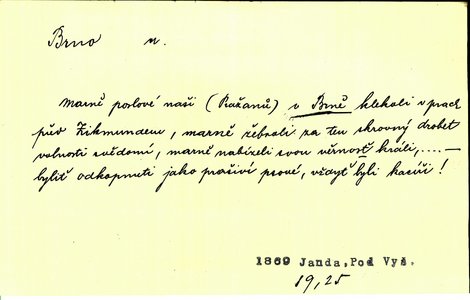 Brno n.
Marně poslové naši (Pražanů) v Brně klekali v prach
před Zikmundem, marně žebrali za ten skrovný drobet
volnosti svědomí, marně nabízeli svou věrnost králi, ..... —
bylitě odkopnuti jako prašiví psové, vždyť byli kacíři!
1869 Janda, Pod Vyš.
19, 25